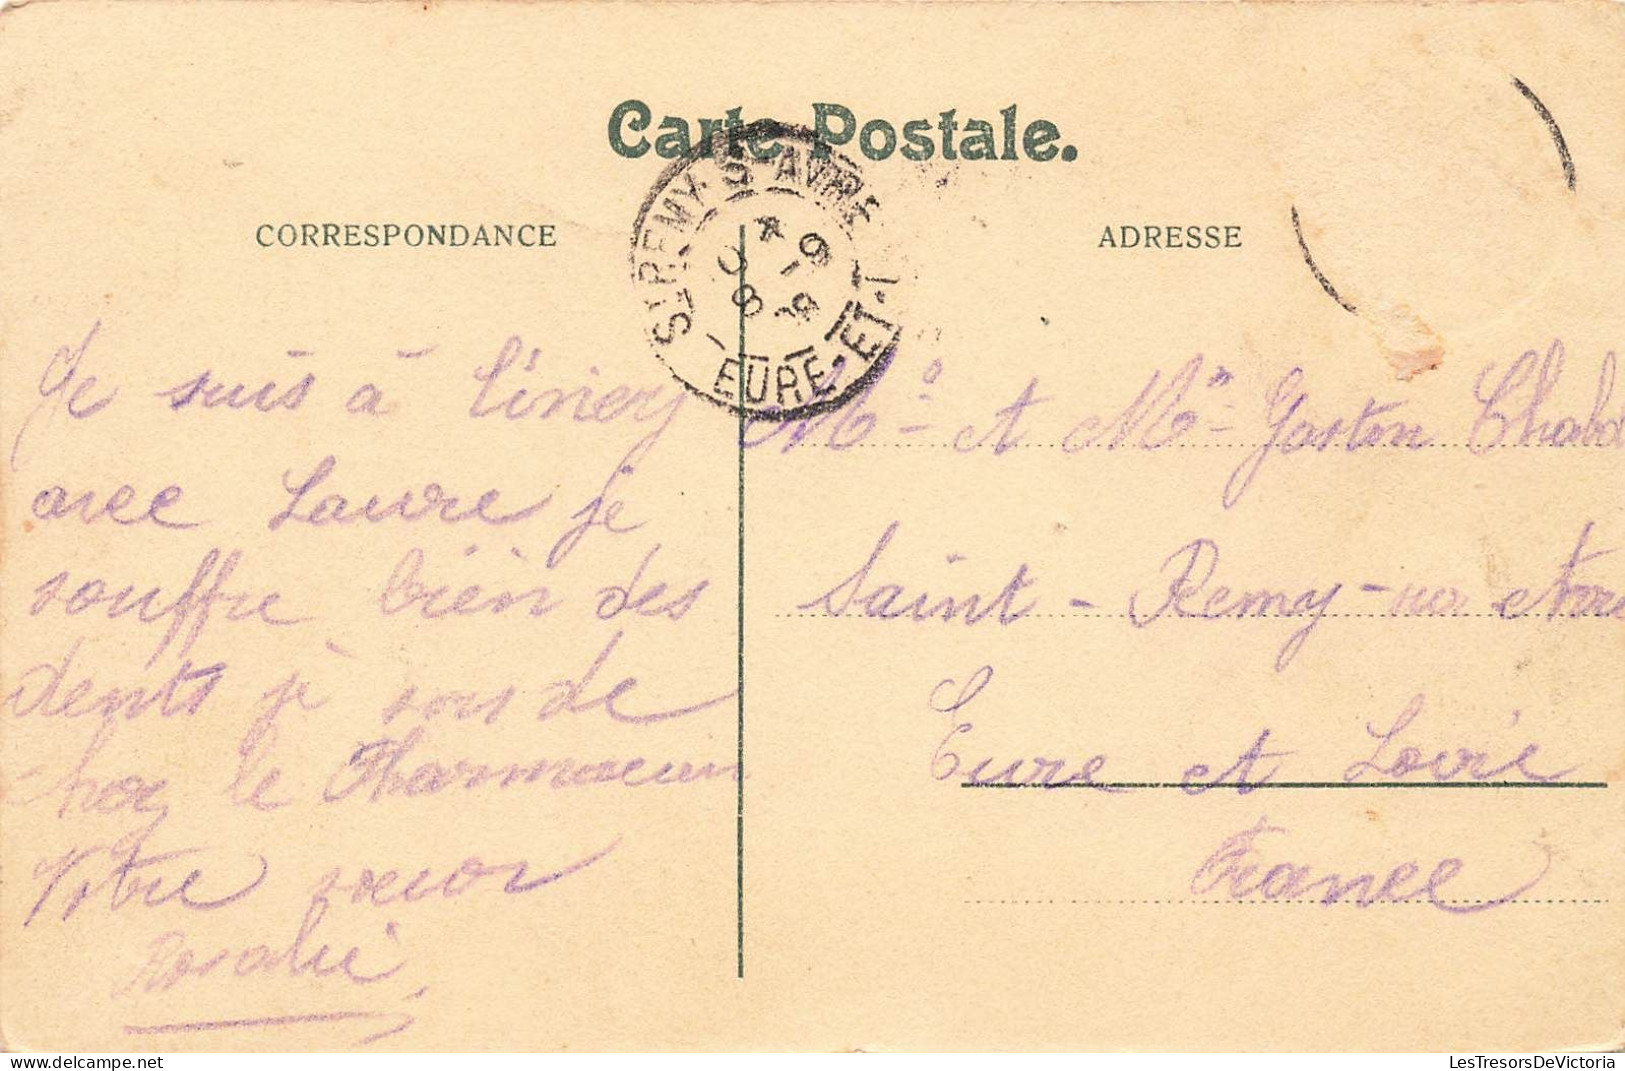 Carte Postale.
CORRESPONDANCE
ADRESSE
ST REMY-S-AVRE
EURE-ET-L
Je suis à
avec Laure je
souffre bien des
dents je sors de
le Pharmacien
Votre soeur
Rosalie
Mr et Mme Gaston
Saint-Remy-
Eure et Loire
France
LesTresorsDeVictoria